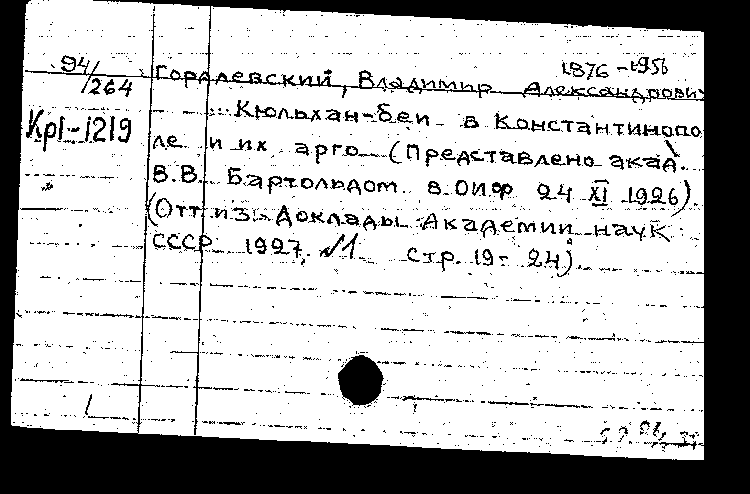 1876-1956
94/264
Гордлевский, Владимир Александрови
Кр1-1219
Кюльхан-беи в Константинопо
ле и их арго (Представлено акад.
В.В. Бартольдом в ОИФ 24 XI 1926).
(Отт. из Доклады Академии наук
СССР 1927, №1 стр. 19-24).